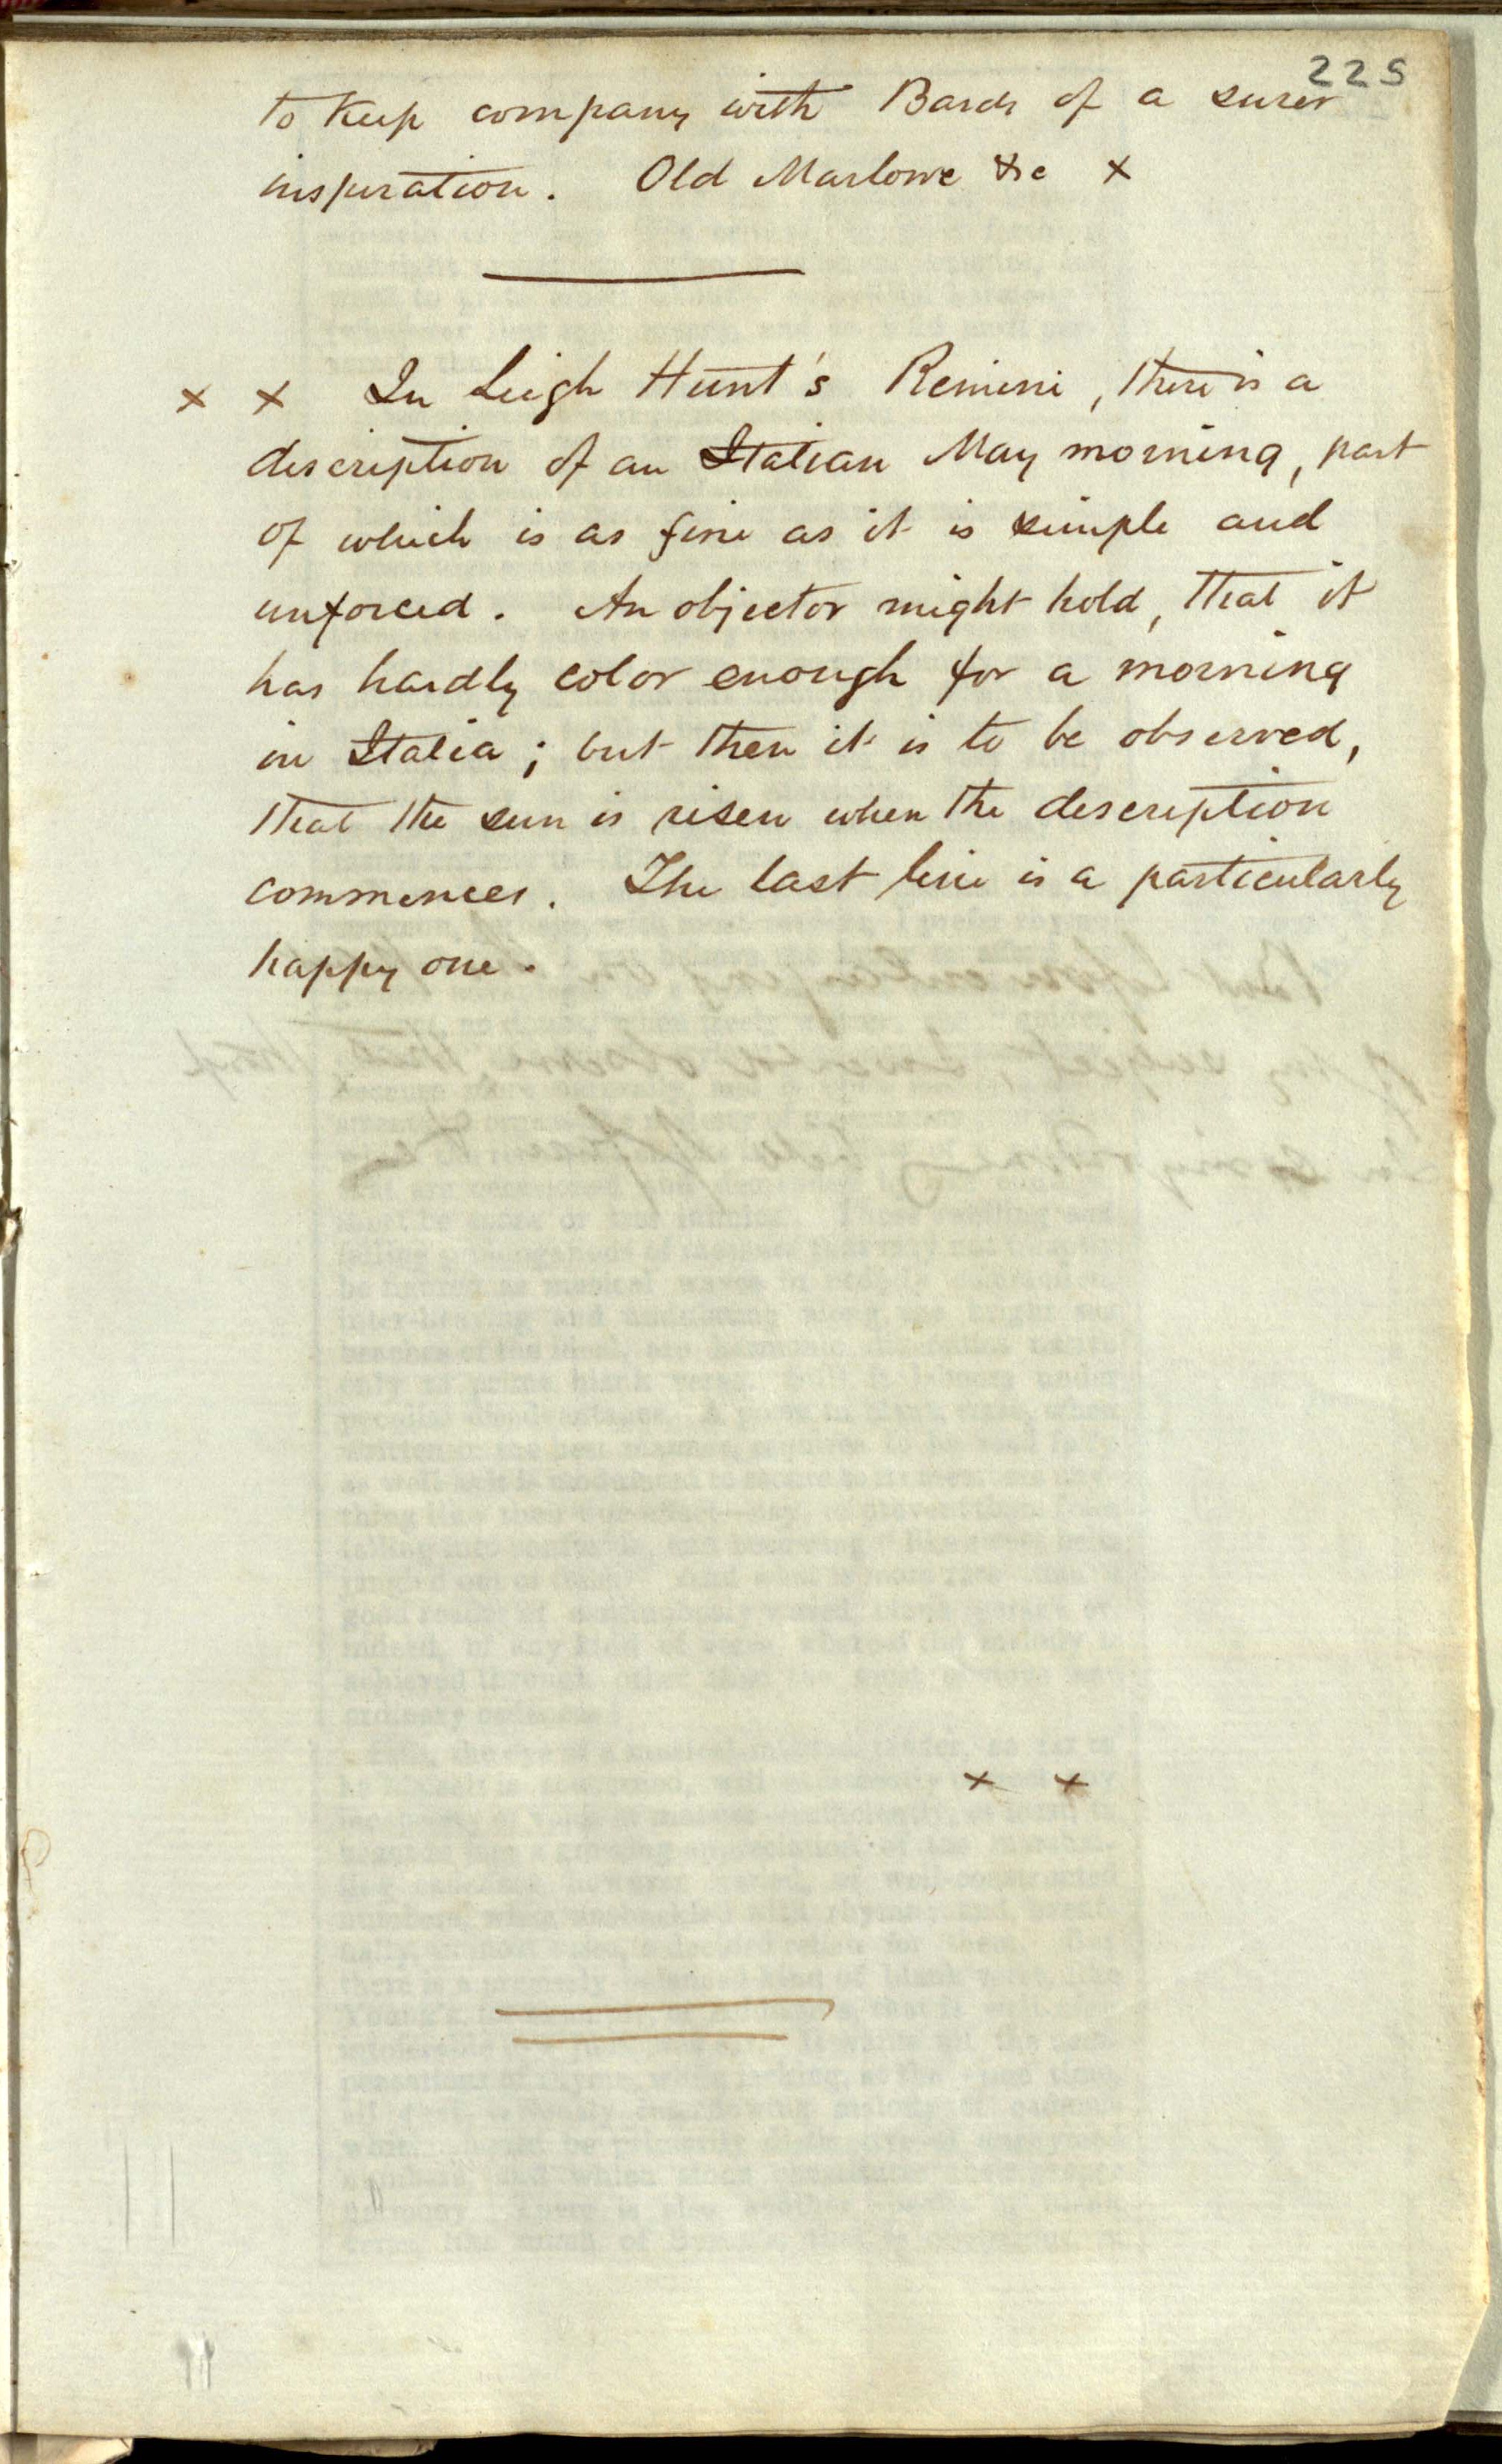 225
to keep company with Bards of a surer
inspiration. Old Marlowe &c x
x x In Leigh Hunt's Remini, there is a
description of an Italian May morning, part
of which is as fine as it is simple and
unforced. An objector might hold, that it
has hardly color enough for a morning
in Italia; but then it is to be observed,
that the sun is risen when the description
commences. The last line is a particularly
happy one.
x x